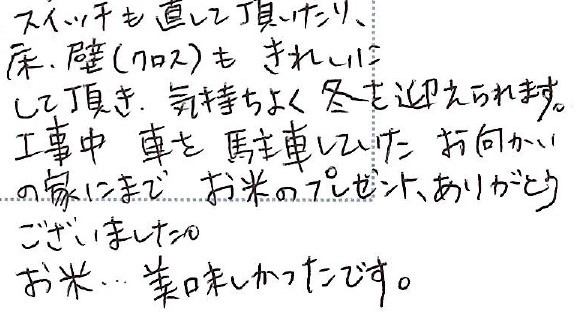 スイッチも直して頂いたり、
床、壁(クロス)も きれいに
して頂き、気持ちよく 冬を迎えられます。
工事中 車を 駐車していた お向かい
の家にまで お米のプレゼント、ありがとう
ございました。
お米… 美味しかったです。